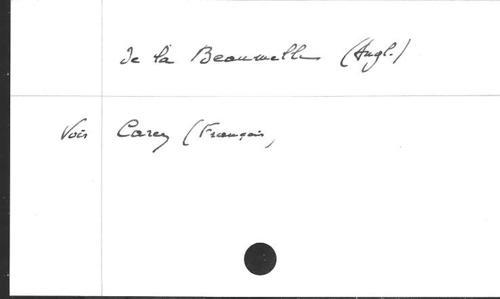 de la Beaumelle (Angl.)
Voir Carey (François,